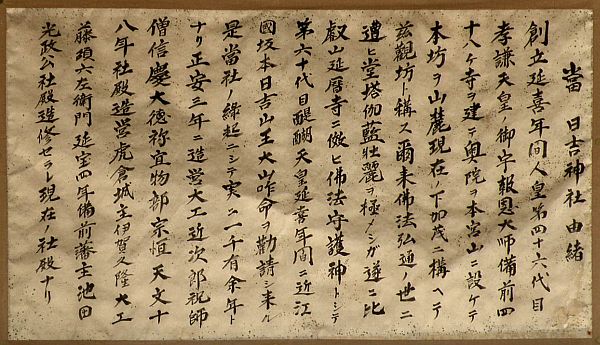 當 日吉神社 由緒
創立延喜年間人皇第四十六代目
孝謙天皇ノ御宇報恩大師備前四
十八ケ寺ヲ建テ奥院ヲ本宮山ニ設ケテ
本坊ヲ山麓現在ノ下加茂ニ構ヘテ
茲觀坊ト稱ス爾来佛法弘通ノ世ニ
遭ヒ堂塔伽藍壯麗ヲ極メシガ遂ニ比
叡山延暦寺ニ倣ヒ佛法守護神トシテ
第六十代目醍醐天皇延喜年間ニ近江
國坂本日吉山王大山咋命ヲ勸請シ来ル
是當社ノ縁起ニシテ実ニ一千有余年ト
ナリ正安三年ニ造営大工近次郎祝師
僧信慶大徳祢宜物部宗恒天文十
八年社殿造営虎倉城主伊賀久隆大工
藤頭六左衛門延宝四年備前藩主池田
光政公社殿造修セラレ現在ノ社殿ナリ